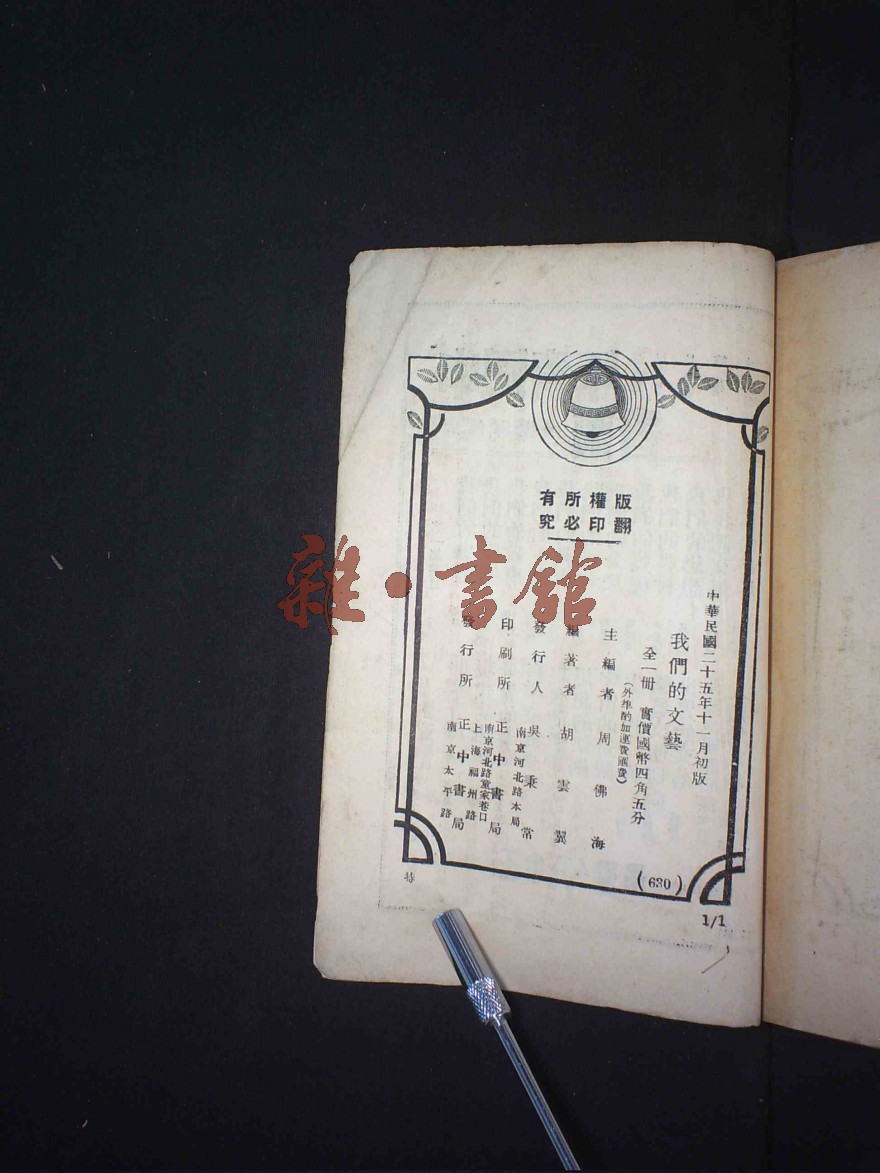 版權所有
翻印必究
中華民國二十五年十一月初版
我們的文藝
全一冊 實價國幣四角五分
(外埠酌加運費匯費)
主編者 周佛海
編著者 胡雲翼
發行人 吳秉常
南京河北路本局
印刷所 正中書局
南京河北路童家巷口
發行所 正中書局
上海福州路
南京太平路
(630)
1/1
特
雜·書館